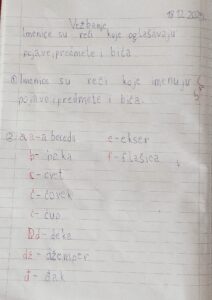 18.12.202
Vežbanje
Imenice su reči koje oglašavaju
pojave, predmete i bića.
① Imenice su reči koje imenuju
pojave, predmete i bića.
②. a - a beceda e - ekser
b - baka f - flašica
c - cvet
č - čovek
ć - ćup
Dd - deka
dž - džemper
đ - đak